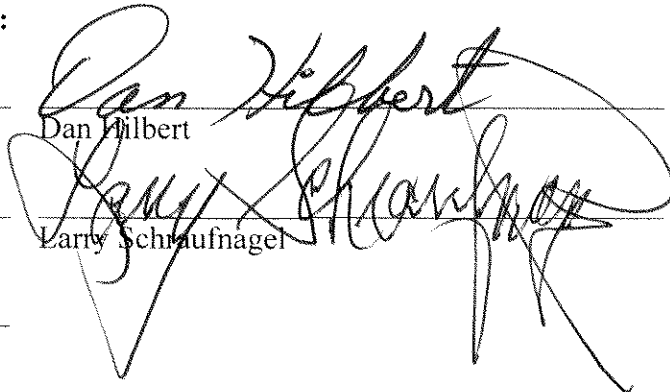 :
Dan Hilbert
Dan Hilbert
Larry Schraufnagel
Larry Schraufnagel